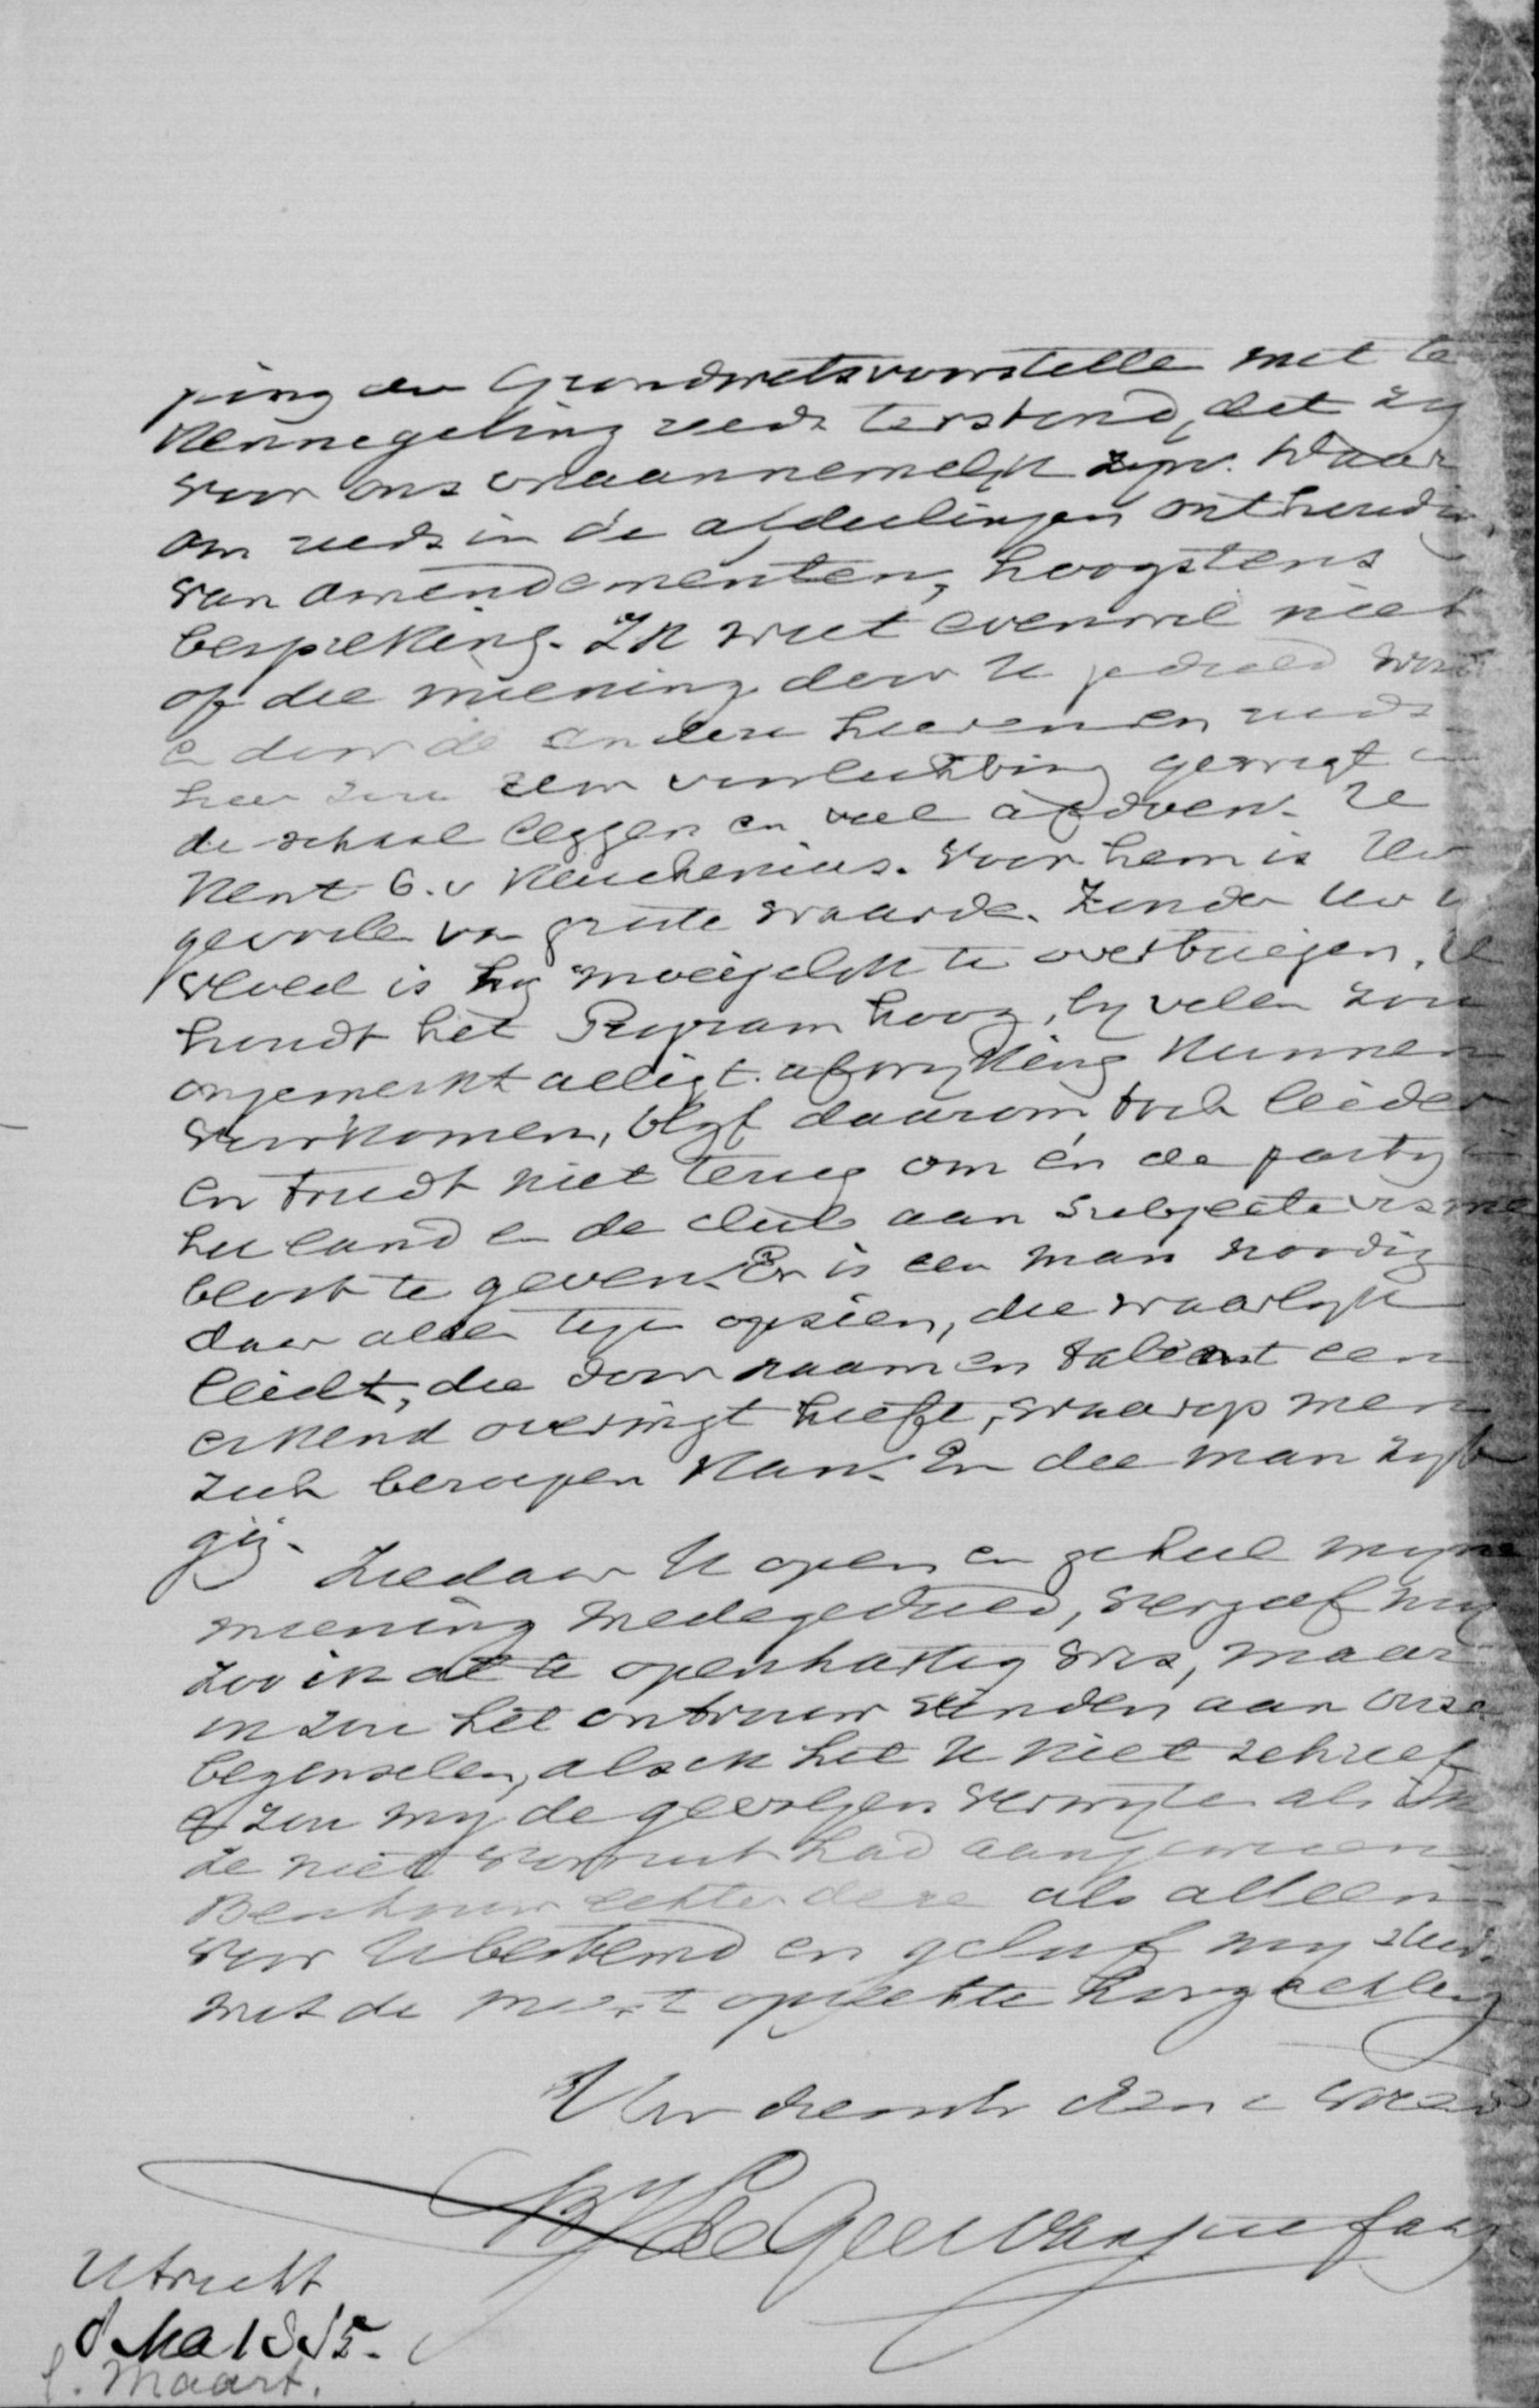 ping der Grondwetsvoorstellen met te
kennegeving reeds terstond, dat zy
voor ons onaannemelyk zyn. Waar
om reeds in de afdeelingen onthouding
van amendementen, hoogstens
bespreking. Ik weet evenwel niet
of die meening door U gedeeld word
en door de andere heeren en reeds
hier zou Uw voorlichting gewigt in
de schaal leggen en veel afdoen. Ze
kent b.v. Keuchenius. Voor hem is Uw
gevoelen van groote waarde. Zonder Uw in
vloed is hy moeijelyk te overbuigen. U
houdt het Program hoog, by velen zou
ongemerkt alligt afwyking kunnen
voorkomen, blyf daarom toch leider
en treedt niet terug om én de party in
het land en de club aan subjectivisme
bloot te geven. Er is een man noodig
daar allen tegen opzien, die waarlyk
leidt, die door naam en talent een
erkend overwigt heeft, waarop men
zich beroepen kan. En die man zyt
gij.
Ziedaar U open en geheel myne
meening medegedeeld, vergeef my
zoo ik al te openhartig was, maar
ik zou het ontrouw vinden aan onze
beginselen, als ik het U niet schreef
& zou my de gevolgen verwyten als ik
ze niet vooruit had aangewezen.
Beschouw echter deze als alleen
voor U bestemd en geloof my steeds
met de meest opregte hoogachting
Uw dienstv dien en vriend
BJL de Geer van Jutfaas
Utrecht
8 Ma 1885.
8. Maart.